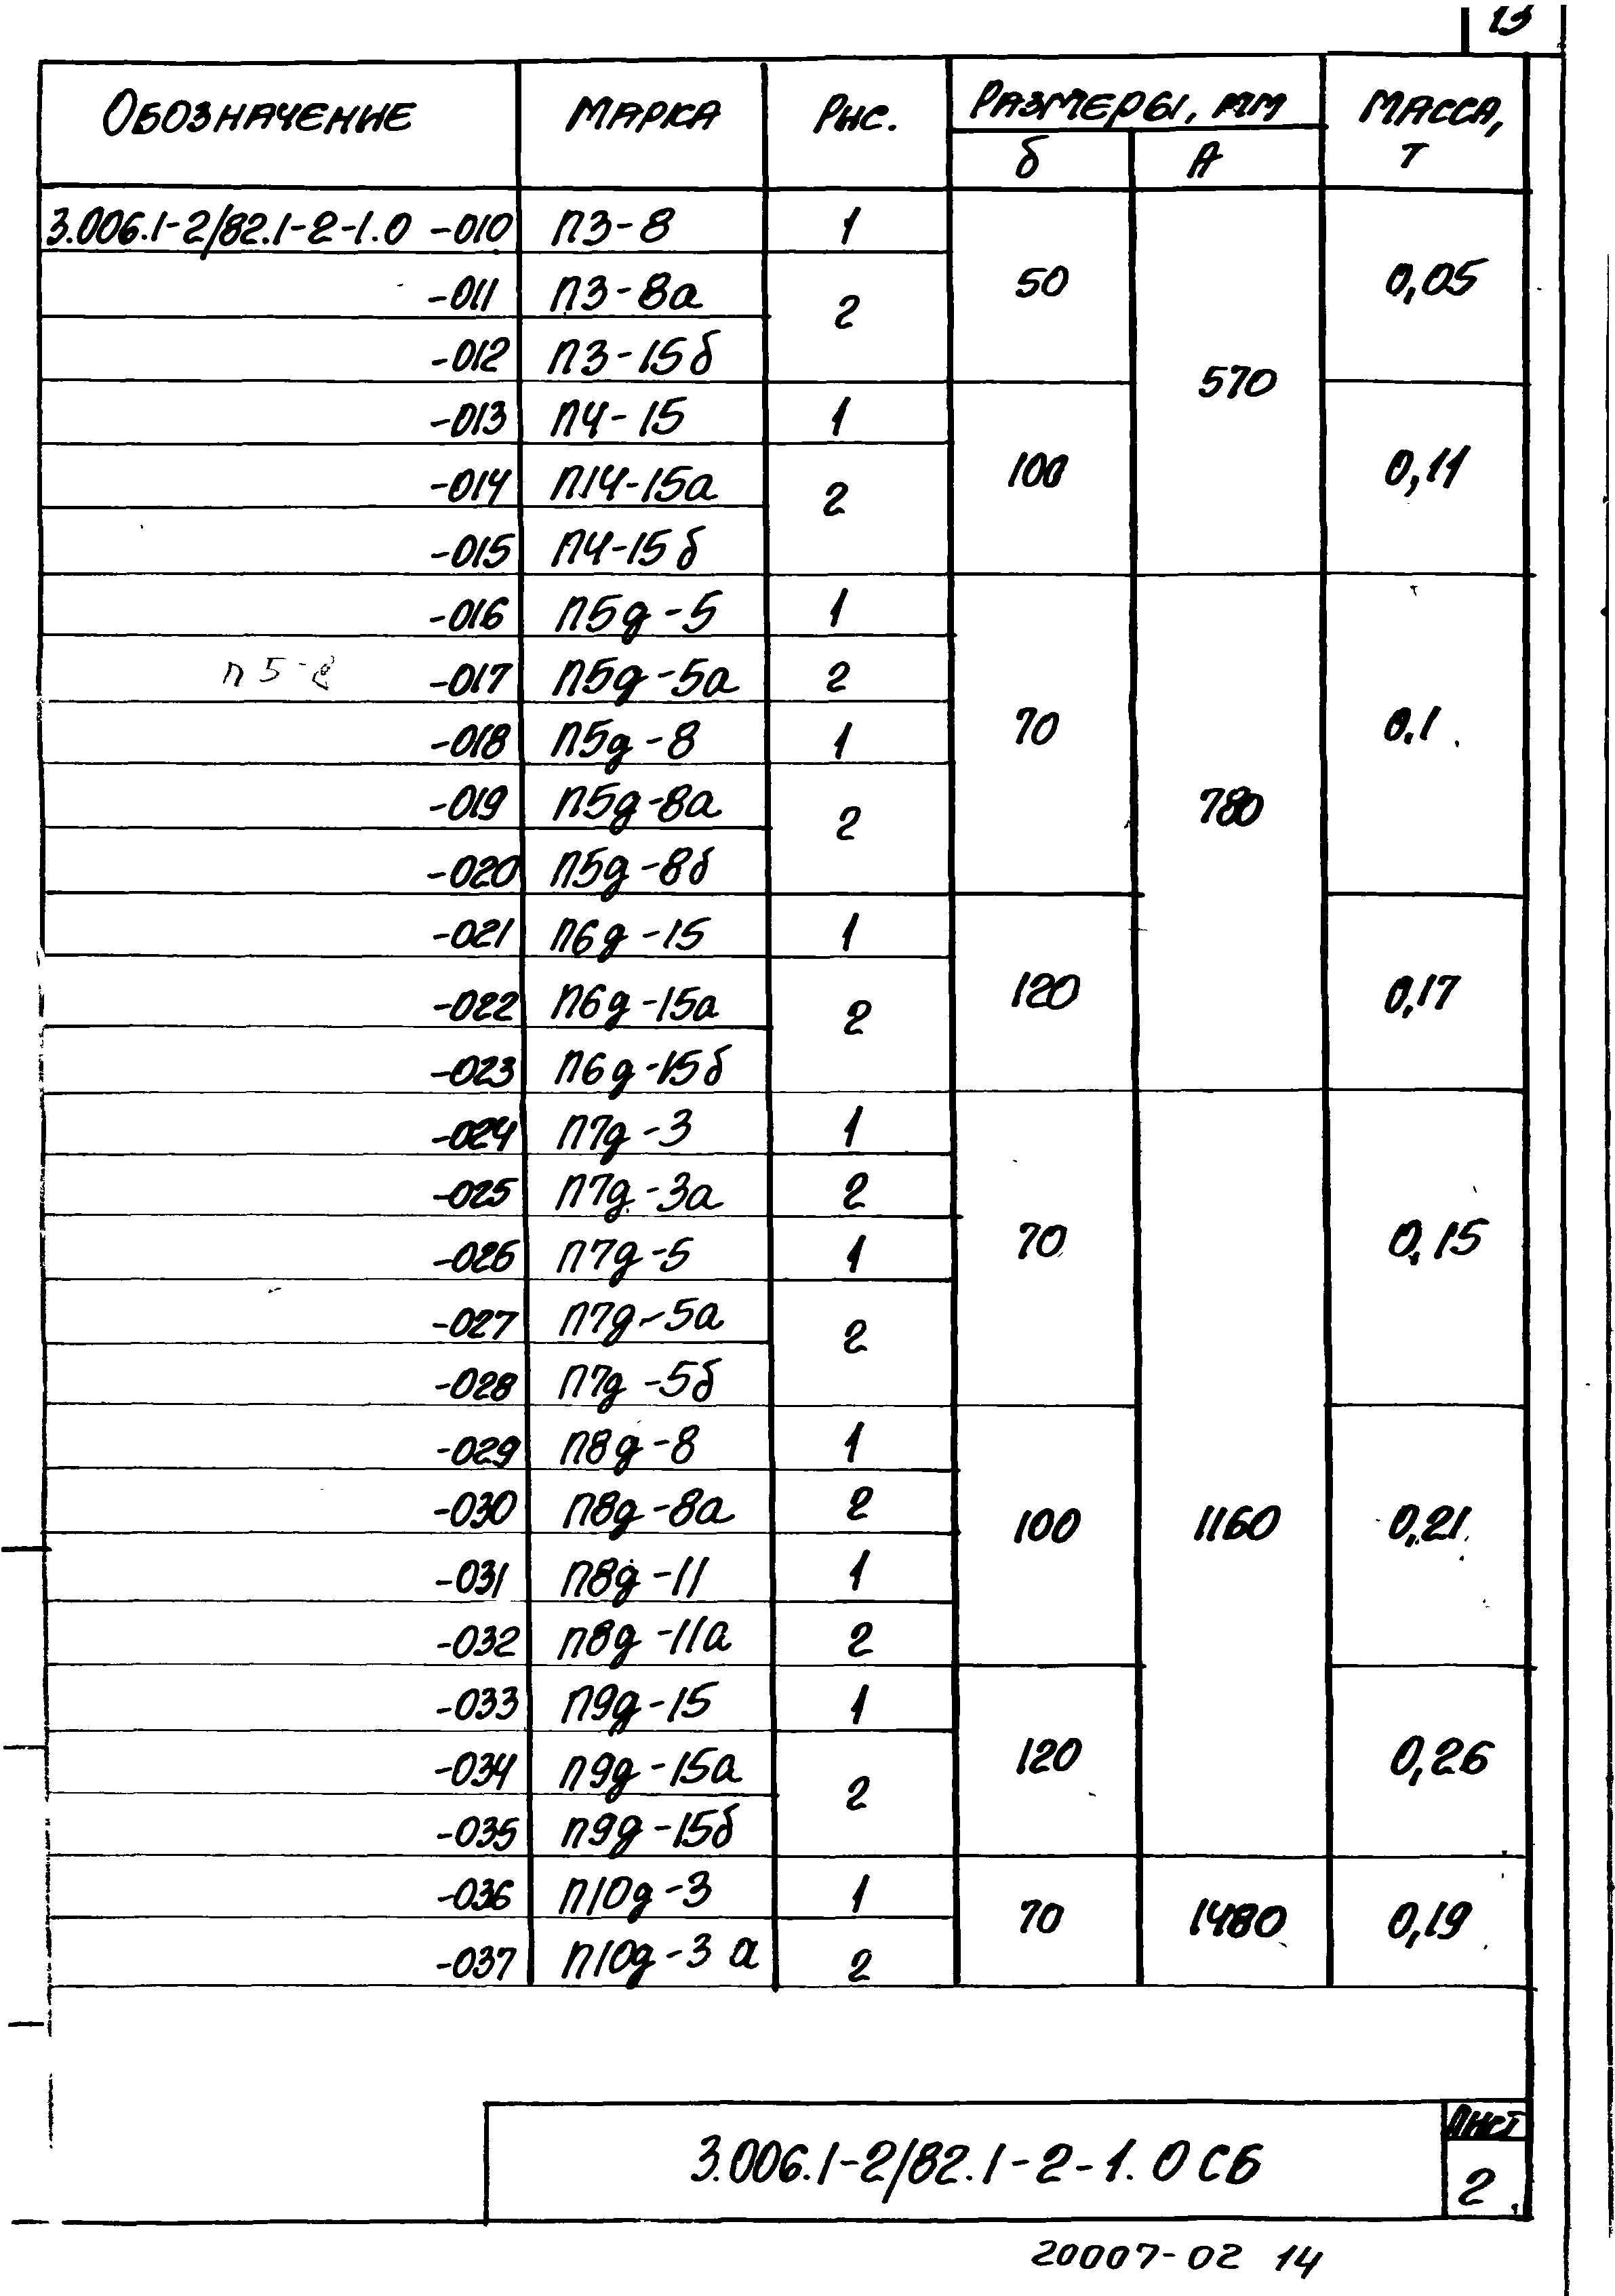 13
Обозначение Марка Рис. Размеры, мм Масса, т
б А
3.006.1-2/82.1-2-1.0 -010 П3-8 1
-011 П3-8а 2 50 0,05
-012 П3-15б 570
-013 П4-15 1
-014 П14-15а 2 100 0,11
-015 П4-15б
-016 П5д-5 1
п 5-8 -017 П5д-5а 2
-018 П5д-8 1 70 0,1
-019 П5д-8а 2 780
-020 П5д-8б
-021 П6д-15 1
-022 П6д-15а 2 120 0,17
-023 П6д-15б
-024 П7д-3 1
-025 П7д-3а 2
-026 П7д-5 1 70 0,15
-027 П7д-5а 2
-028 П7д-5б
-029 П8д-8 1
-030 П8д-8а 2 100 1160 0,21
-031 П8д-11 1
-032 П8д-11а 2
-033 П9д-15 1
-034 П9д-15а 2 120 0,26
-035 П9д-15б
-036 П10д-3 1 70 1480 0,19
-037 П10д-3а 2
3.006.1-2/82.1-2-1.0 СБ
Лист
2
20007-02 14